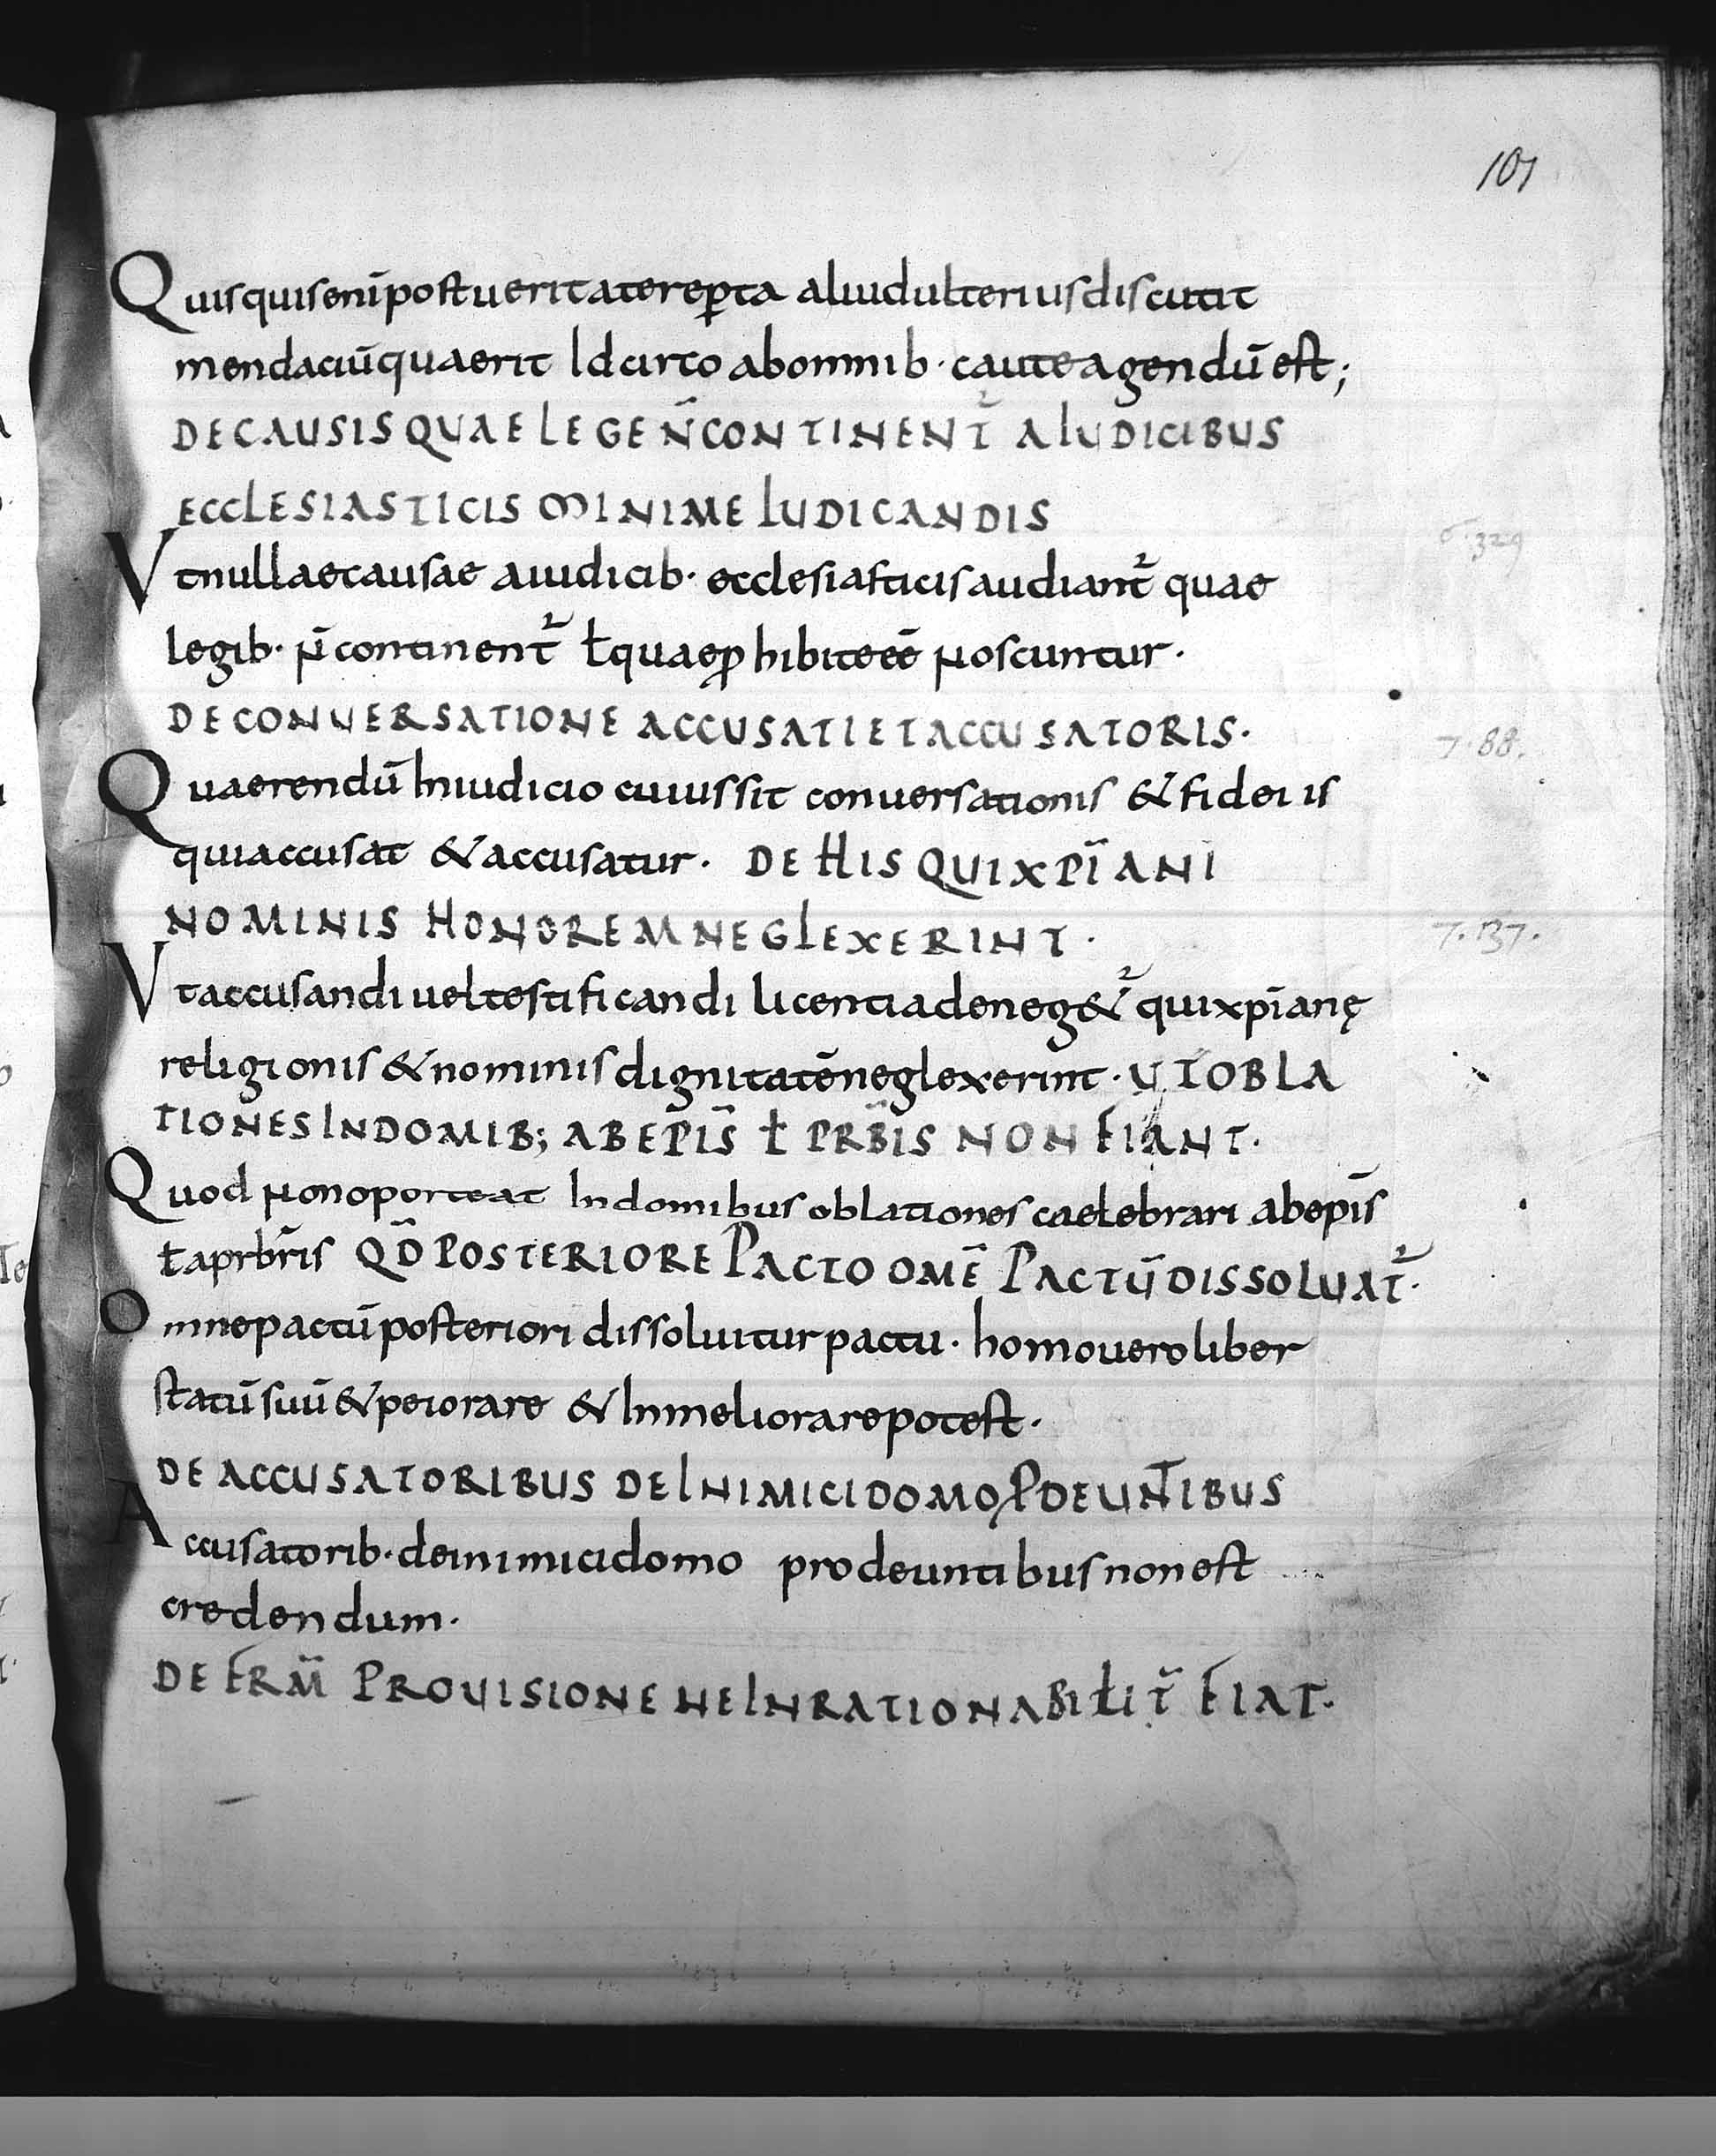 101
Quisquis enī post ueritate reꝑta aliud ulterius discutit
mendaciū quaerit Idcirco ab omnib· caute agendū est;
DE CAUSIS QVAE LEGE N̄ CONTINENT᷑ A IUDICIBUS
ECCLESIASTICIS MINIME IUDICANDIS
6.329
Vt nullae causae a iudicib· ecclesiasticis audiant᷑ quae
legib· n̄ continent᷑ ł quae ꝓhibite eē noscuntur·
DE CONUERSATIONE ACCUSATI ET ACCUSATORIS·
7.88.
Quaerendū In iudicio cuius sit conuersationis & fidei is
qui accusat & accusatur· DE HIS QUI XPĪANI
NOMINIS HONOREM NEGLEXERINT·
7.137.
Vt accusandi uel testificandi licentia deneg&᷑ qui xpīanę
religionis & nominis dignitatē neglexerint· UT OBLA
TIONES IN DOMIB; AB EPĪS ł PRB̄IS NON FIANT·
Quod non oporteat In domibus oblationes caelebrari ab epīs
ł a prb̄ris QD̄ POSTERIORE PACTO OMĒ PACTŪ DISSOLUAT᷑·
Omne pactū posteriori dissoluitur pactu· homo uero liber
statū suū & peiorare & In meliorare potest·
DE ACCUSATORIBUS DE INIMICI DOMO ꝒDEUNTIBUS
Accusatorib· de inimici domo prodeuntibus non est
credendum·
DE FRM̄ PROUISIONE NE INRATIONABIŁIT᷑ FIAT·